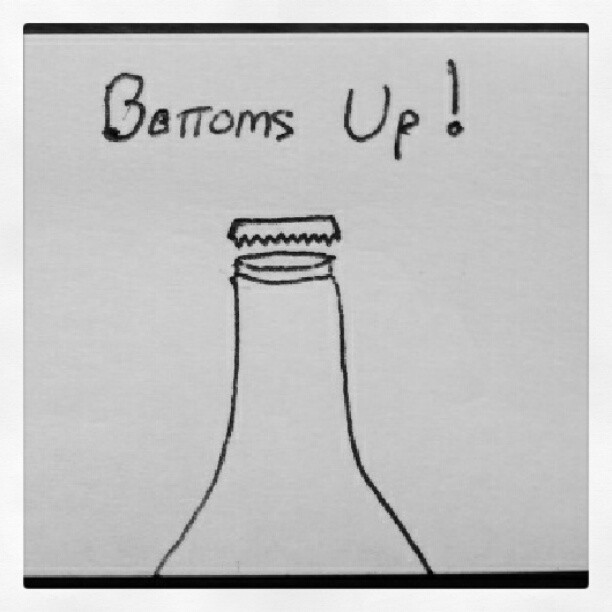 Bottoms Up!